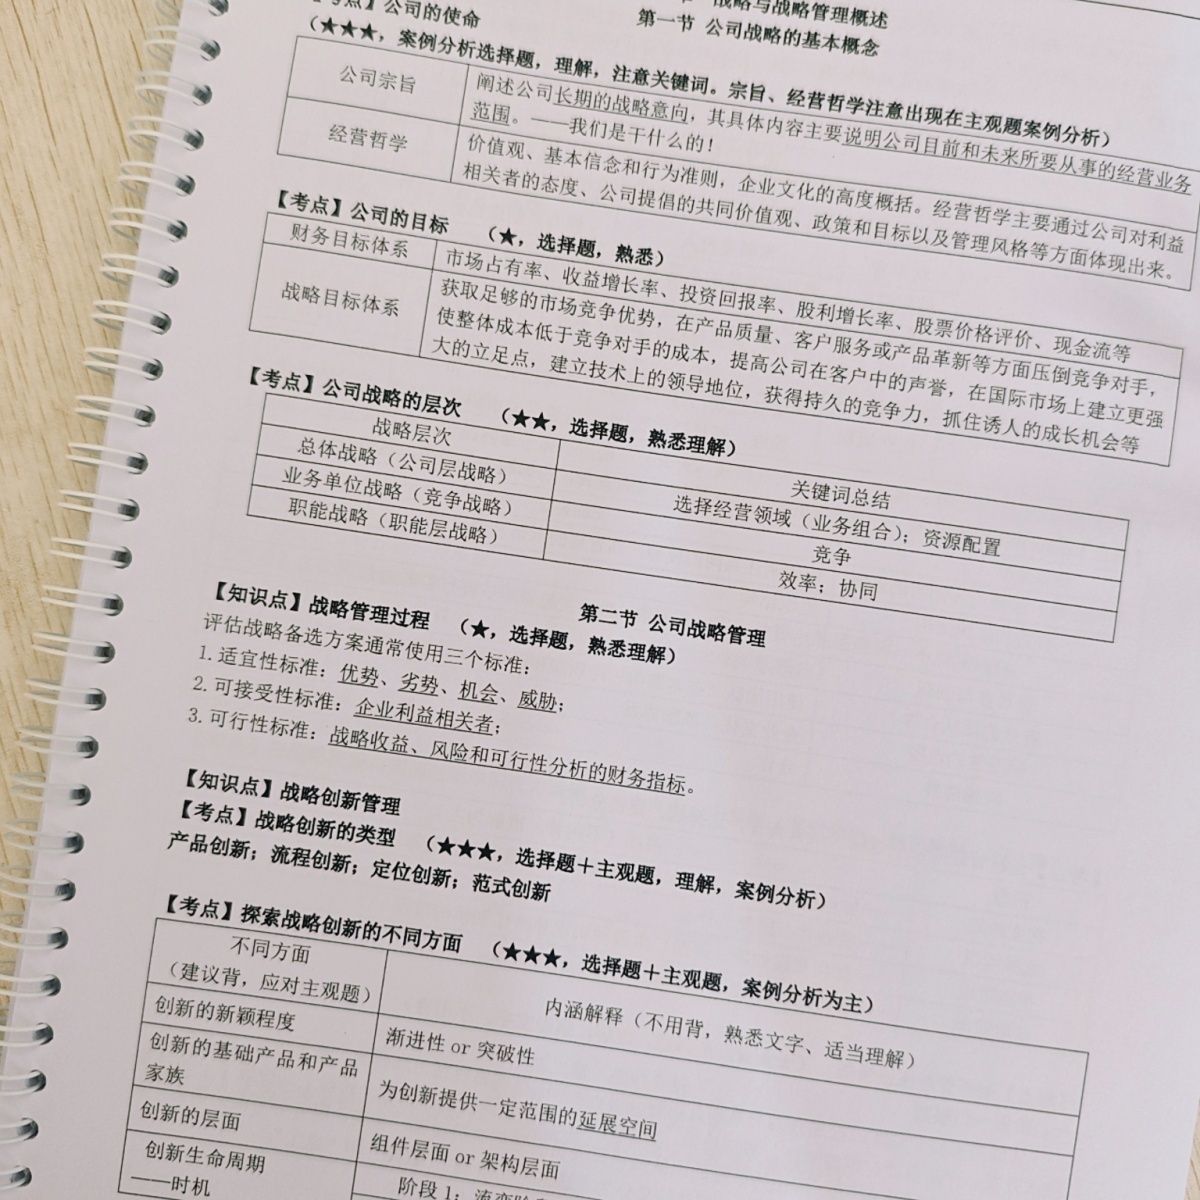 战略与战略管理概述
第一节 公司战略的基本概念
考点】公司的使命
（★★★，案例分析选择题，理解，注意关键词。宗旨、经营哲学注意出现在主观题案例分析）
公司宗旨
阐述公司长期的战略意向，其具体内容主要说明公司目前和未来所要从事的经营业务
范围。——我们是干什么的！
经营哲学
价值观、基本信念和行为准则，企业文化的高度概括。经营哲学主要通过公司对利益
相关者的态度、公司提倡的共同价值观、政策和目标以及管理风格等方面体现出来。
【考点】公司的目标 （★，选择题，熟悉）
财务目标体系
市场占有率、收益增长率、投资回报率、股利增长率、股票价格评价、现金流等
战略目标体系
获取足够的市场竞争优势，在产品质量、客户服务或产品革新等方面压倒竞争对手，
使整体成本低于竞争对手的成本，提高公司在客户中的声誉，在国际市场上建立更强
大的立足点，建立技术上的领导地位，获得持久的竞争力，抓住诱人的成长机会等
【考点】公司战略的层次 （★★，选择题，熟悉理解）
战略层次 关键词总结
总体战略（公司层战略） 选择经营领域（业务组合）；资源配置
业务单位战略（竞争战略） 竞争
职能战略（职能层战略） 效率；协同
第二节 公司战略管理
【知识点】战略管理过程 （★，选择题，熟悉理解）
评估战略备选方案通常使用三个标准：
1. 适宜性标准：优势、劣势、机会、威胁；
2. 可接受性标准：企业利益相关者；
3. 可行性标准：战略收益、风险和可行性分析的财务指标。
【知识点】战略创新管理
【考点】战略创新的类型 （★★★，选择题＋主观题，理解，案例分析）
产品创新；流程创新；定位创新；范式创新
【考点】探索战略创新的不同方面 （★★★，选择题＋主观题，案例分析为主）
不同方面
（建议背，应对主观题）
内涵解释（不用背，熟悉文字、适当理解）
创新的新颖程度
渐进性 or 突破性
创新的基础产品和产品
家族
为创新提供一定范围的延展空间
创新的层面
组件层面 or 架构层面
创新生命周期
——时机
阶段 1：流变阶